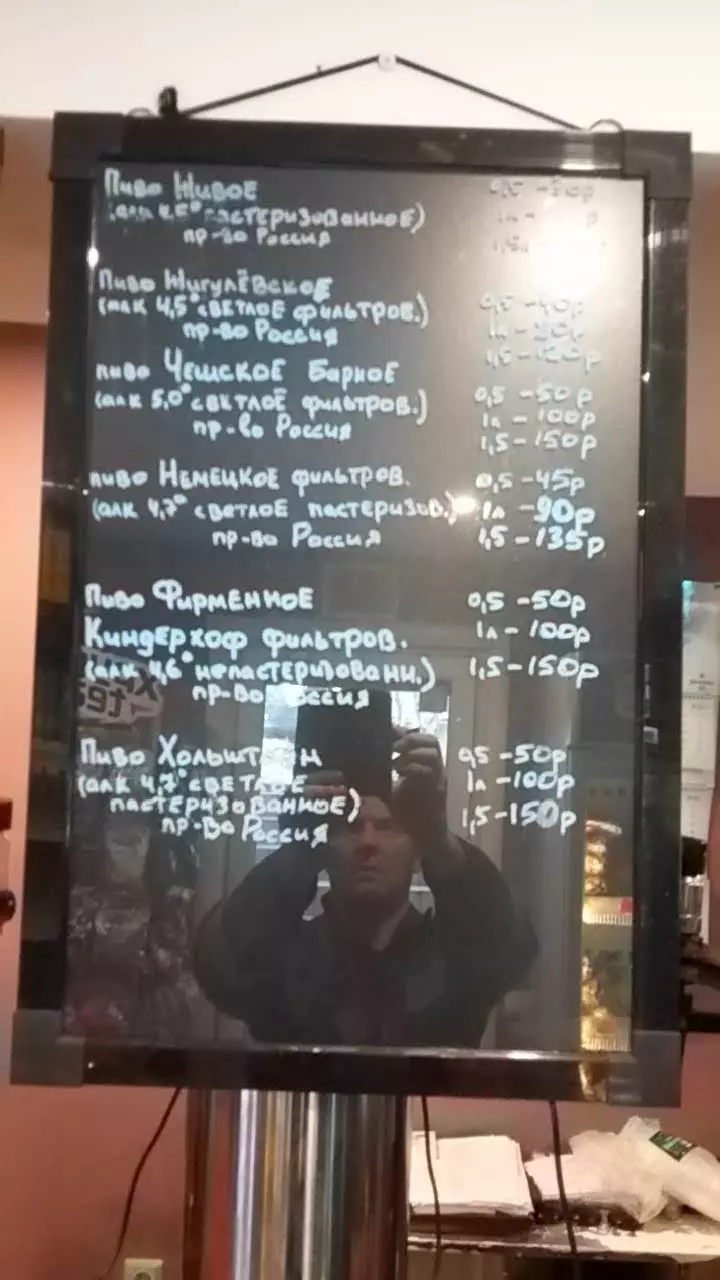 Пиво Живое
(алк 4.5° пастеризованное)
пр-во Россия
Пиво Жигулёвское 0,5 - 40р
(алк 4,5° светлое фильтров.)
пр-во Россия 1,5 - 120р
пиво Чешское Барное 0,5 - 50р
(алк 5,0° светлое фильтров.) 1л - 100р
пр-во Россия 1,5 - 150р
пиво Немецкое фильтров. 0,5 - 45р
(алк 4,7° светлое пастеризов.) 1л - 90р
пр-во Россия 1,5 - 135р
Пиво Фирменное 0,5 - 50р
Киндерхоф фильтров. 1л - 100р
(алк 4,6° непастеризованн.) 1,5 - 150р
пр-во Россия
Пиво Хольштейн 0,5 - 50р
(алк 4,7° светлое 1л - 100р
пастеризованное) 1,5 - 150р
пр-во Россия